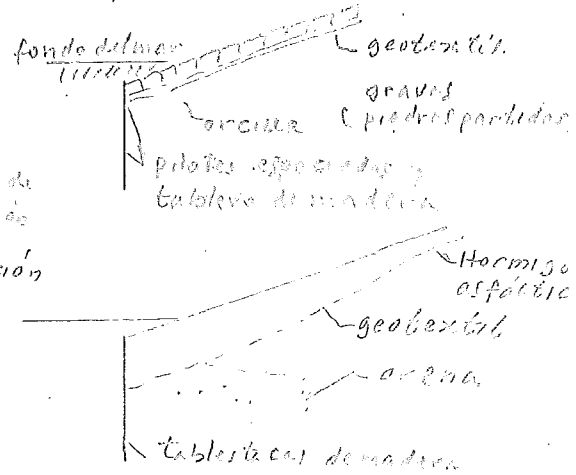 fondo del mar
geotextil
graves
( piedras partidas,
arcilla
pilotes espaciados y
tablero de madera
de
ón
ión
Hormigó
asfáltic
geotextil
arena
tablestacas de madera